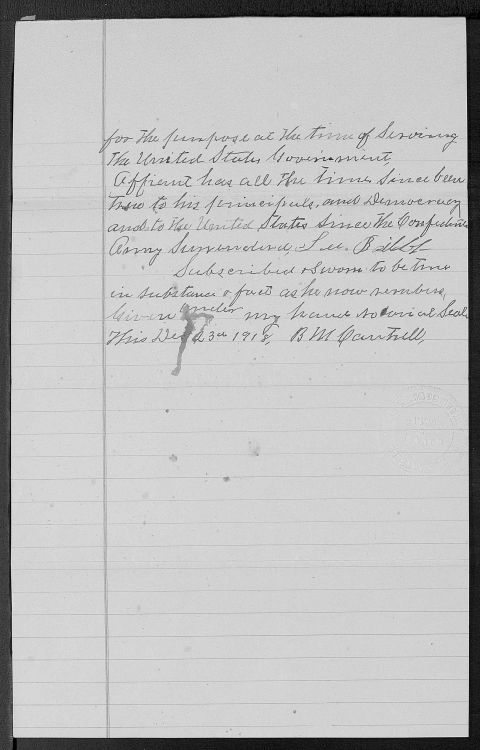 for the purpose at the time of Serving
the United States Government,
Affiant has all the time since been
true to his principals, and Democracy
and to the United States Since the Confederate
Army Surrendered,
Subscribed & Sworn to be true
in substance & fact as he now rembers,
Given under my hand
This Dec 23rd 1918, B M Cantrell,